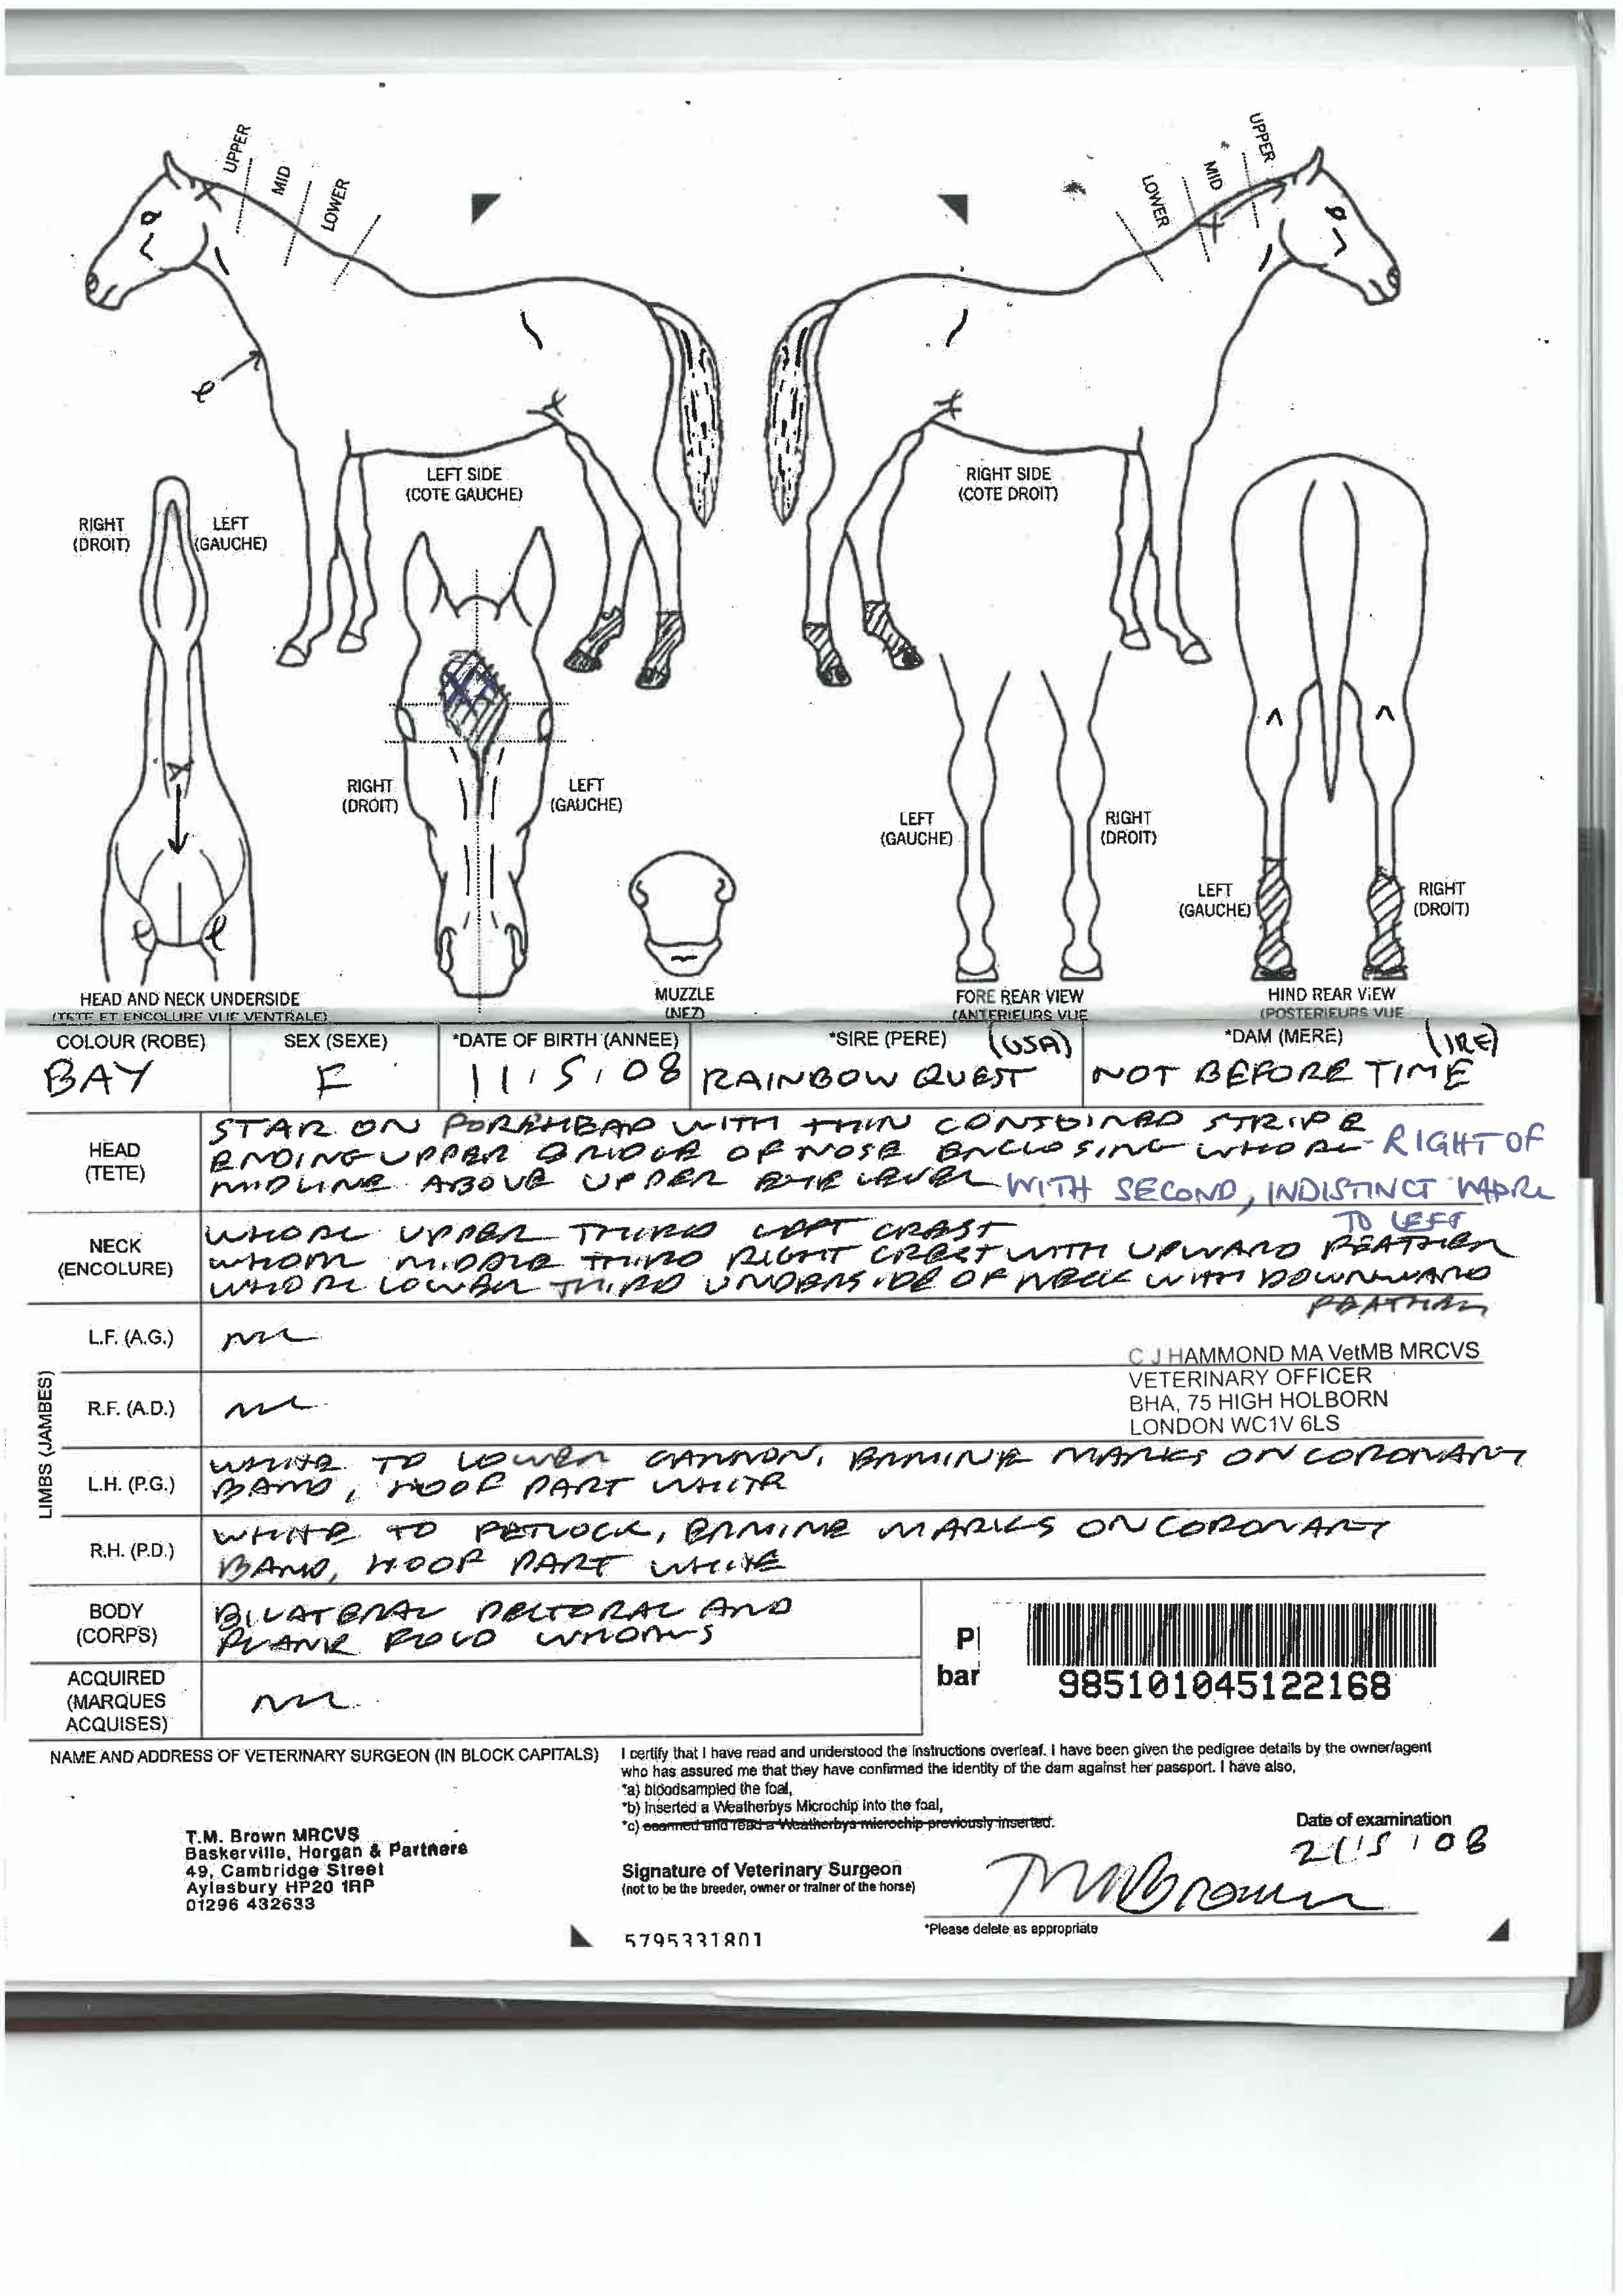 UPPER
MID
LOWER
UPPER
MID
LOWER
LEFT SIDE
(COTE GAUCHE)
RIGHT SIDE
(COTE DROIT)
RIGHT
(DROIT)
LEFT
(GAUCHE)
RIGHT
(DROIT)
LEFT
(GAUCHE)
LEFT
(GAUCHE)
RIGHT
(DROIT)
LEFT
(GAUCHE)
RIGHT
(DROIT)
HEAD AND NECK UNDERSIDE
(TETE ET ENCOLURE VUE VENTRALE)
MUZZLE
(NEZ)
FORE REAR VIEW
(ANTERIEURS VUE
HIND REAR VIEW
(POSTERIEURS VUE
COLOUR (ROBE)
BAY
SEX (SEXE)
F
*DATE OF BIRTH (ANNEE)
11.5.08
*SIRE (PERE) (USA)
RAINBOW QUEST
*DAM (MERE) (IRE)
NOT BEFORE TIME
HEAD
(TETE)
STAR ON FOREHEAD WITH THIN CONJOINED STRIPE
ENDING UPPER BRIDGE OF NOSE ENCLOSING WHORL - RIGHT OF
MIDLINE ABOVE UPPER EYE LEVEL WITH SECOND, INDISTINCT WHORL
TO LEFT
NECK
(ENCOLURE)
WHORL UPPER THIRD LEFT CREST
WHORL MIDDLE THIRD RIGHT CREST WITH UPWARD FEATHER
WHORL LOWER THIRD UNDERSIDE OF NECK WITH DOWNWARD
FEATHER
LIMBS (JAMBES)
L.F. (A.G.)
NIL
C J HAMMOND MA VetMB MRCVS
VETERINARY OFFICER
BHA, 75 HIGH HOLBORN
LONDON WC1V 6LS
R.F. (A.D.)
NIL
L.H. (P.G.)
WHITE TO LOWER CANNON, ERMINE MARKS ON CORONARY
BAND, HOOF PART WHITE
R.H. (P.D.)
WHITE TO FETLOCK, ERMINE MARKS ON CORONARY
BAND, HOOF PART WHITE
BODY
(CORPS)
BILATERAL PECTORAL AND
FLANK FOLD WHORLS
ACQUIRED
(MARQUES
ACQUISES)
NIL
Pl
bar
985101045122168
NAME AND ADDRESS OF VETERINARY SURGEON (IN BLOCK CAPITALS)
T.M. Brown MRCVS
Baskerville, Horgan & Partners
49, Cambridge Street
Aylesbury HP20 1RP
01296 432633
I certify that I have read and understood the instructions overleaf. I have been given the pedigree details by the owner/agent
who has assured me that they have confirmed the identity of the dam against her passport. I have also,
*a) bloodsampled the foal,
*b) inserted a Weatherbys Microchip into the foal,
*c) scanned and read a Weatherbys microchip previously inserted.
Date of examination
21.5.08
Signature of Veterinary Surgeon
(not to be the breeder, owner or trainer of the horse)
TM Brown
*Please delete as appropriate
5795331801